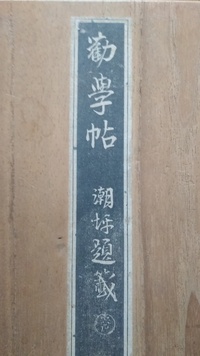 勸學帖
潮坪題籤